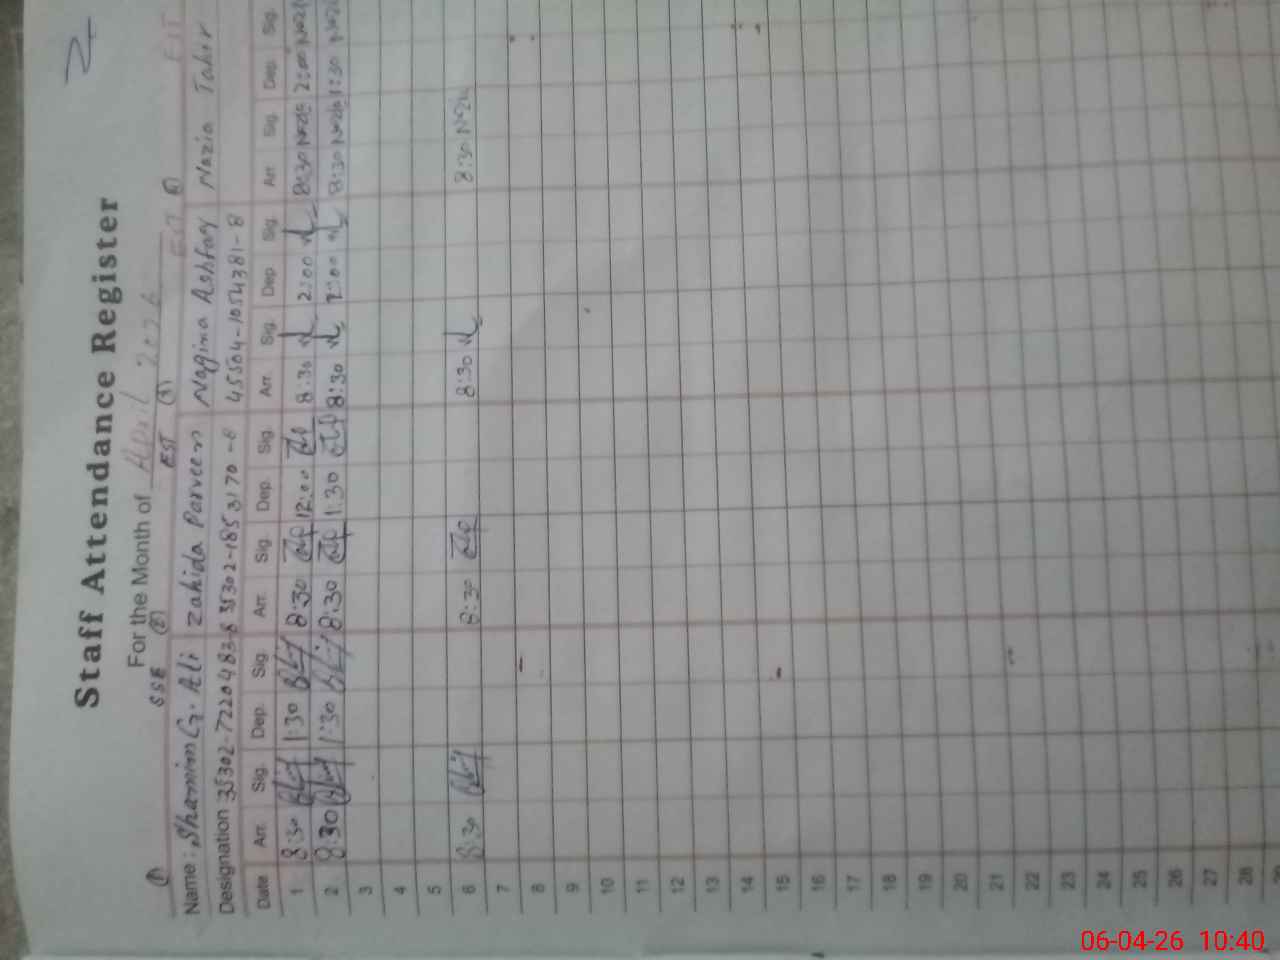 Staff Attendance Register
For the Month of April 2026
SSE EST EST EST
(1) (2) (3) (4)
Name : Shamim G. Ali Zahida Parveen Nagina Ashfaq Nazia Tahir
Designation 35302-7220483-8 35302-1853170-8 45504-1054381-8
Date Arr. Sig. Dep. Sig. Arr. Sig. Dep. Sig. Arr. Sig. Dep Sig. Arr. Sig. Dep. Sig.
1 8:30 1:30 8:30 12:00 8:30 2:00 8:30 2:00
2 8:30 1:30 8:30 1:30 8:30 2:00 8:30 1:30
3
4
5
6 8:30 8:30 8:30 8:30
7
8
9
10
11
12
13
14
15
16
17
18
19
20
21
22
23
24
25
26
27
28
06-04-26 10:40